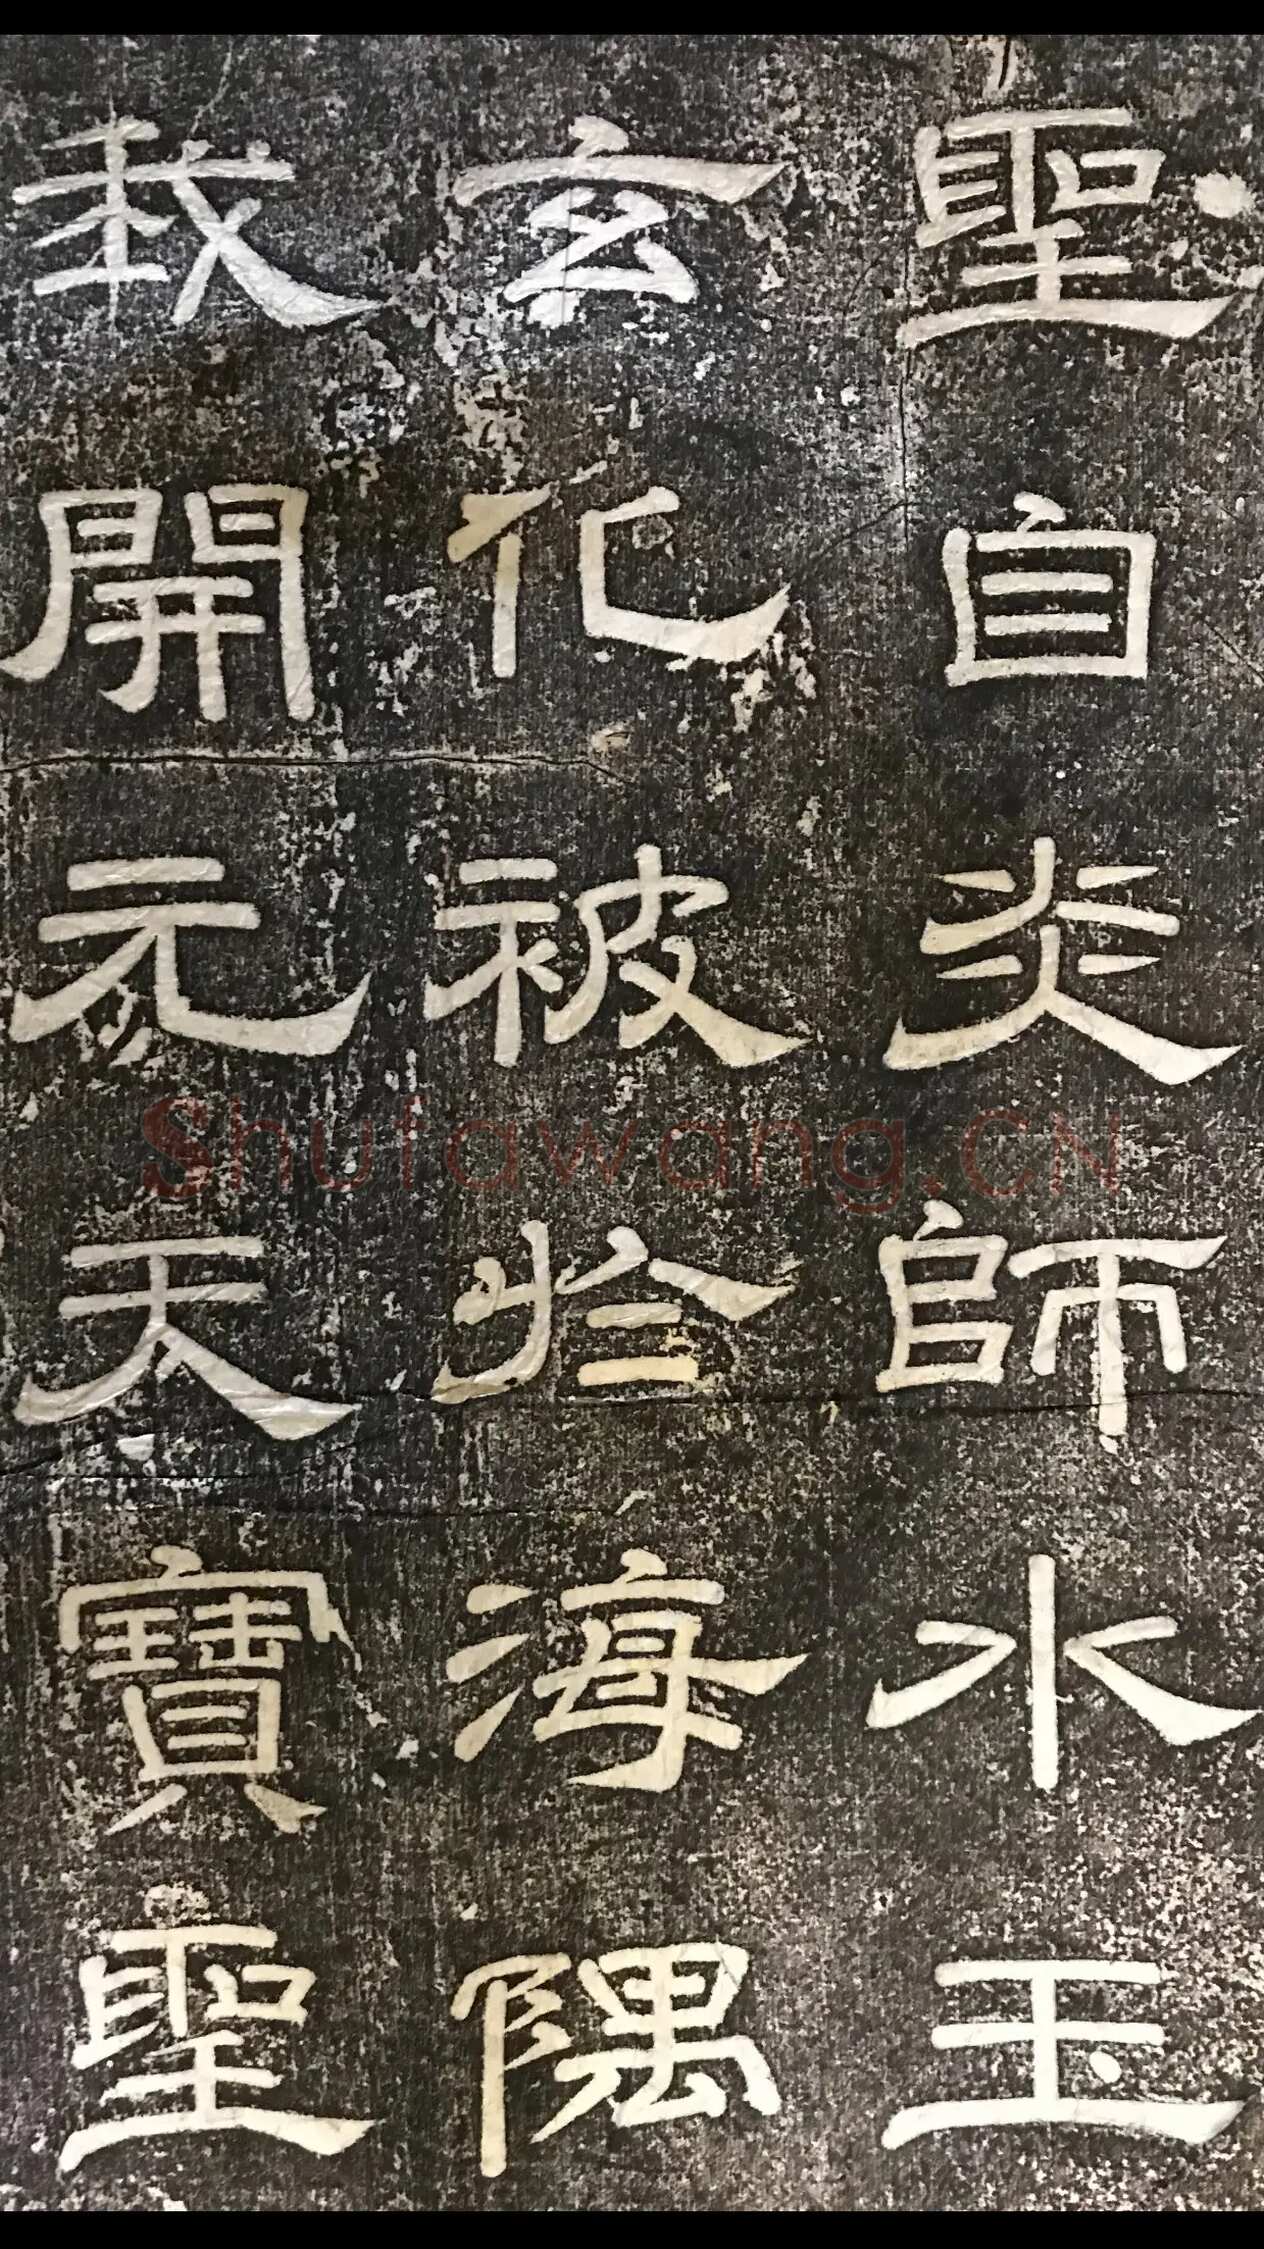 聖自炎師水玉
玄化被於海隅
我開元天寶聖
Shufawang.CN